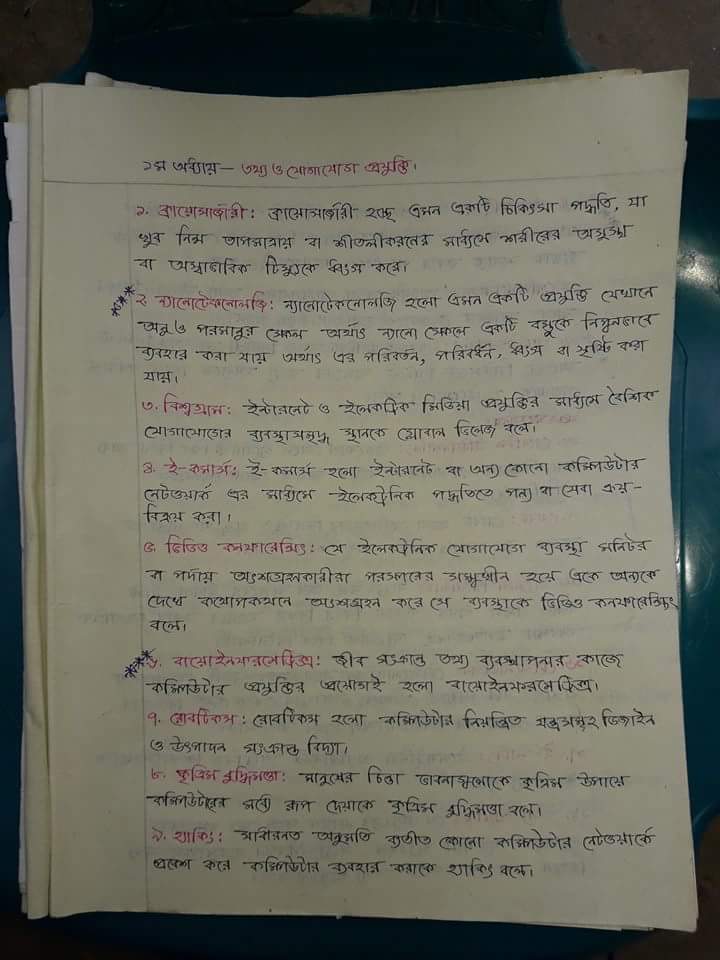 ১ম অধ্যায় – তথ্য ও যোগাযোগ প্রযুক্তি।
১. ক্রায়োসার্জারী: ক্রায়োসার্জারী হচ্ছে এমন একটি চিকিৎসা পদ্ধতি, যা
খুব নিম্ন তাপমাত্রায় বা শীতলীকরনের মাধ্যমে শরীরের অসুস্থ
বা অস্বাভাবিক টিস্যুকে ধ্বংস করে।
২. ন্যানোটেকনোলজি: ন্যানোটেকনোলজি হলো এমন একটি প্রযুক্তি যেখানে
অনু ও পরমানুর স্কেল অর্থাৎ ন্যানো স্কেলে একটি বস্তুকে নিপুনভাবে
ব্যবহার করা যায় অর্থাৎ এর পরিবর্তন, পরিবর্ধন, ধ্বংস বা সৃষ্টি করা
যায়।
৩. বিশ্বগ্রাম: ইন্টারনেট ও ইলেকট্রিক মিডিয়া প্রযুক্তির মাধ্যমে বৈশ্বিক
যোগাযোগের ব্যবস্থাসমৃদ্ধ স্থানকে গ্লোবাল ভিলেজ বলে।
৪. ই-কমার্স: ই-কমার্স হলো ইন্টারনেট বা অন্য কোনো কম্পিউটার
নেটওয়ার্ক এর মাধ্যমে ইলেকট্রনিক পদ্ধতিতে পন্য বা সেবা ক্রয়-
বিক্রয় করা।
৫. ভিডিও কনফারেন্সিং: যে ইলেকট্রনিক যোগাযোগ ব্যবস্থা মনিটর
বা পর্দায় অংশগ্রহনকারীরা পরস্পরের সম্মুখীন হয়ে একে অন্যকে
দেখে কথোপকথনে অংশগ্রহন করে সে ব্যবস্থাকে ভিডিও কনফারেন্সিং
বলে।
৬. বায়োইনফরমেটিক্স: জীব সংক্রান্ত তথ্য ব্যবস্থাপনার কাজে
কম্পিউটার প্রযুক্তির প্রয়োগই হলো বায়োইনফরমেটিক্স।
৭. রোবটিকস: রোবটিকস হলো কম্পিউটার নিয়ন্ত্রিত যন্ত্রসমূহ ডিজাইন
ও উৎপাদন সংক্রান্ত বিদ্যা।
৮. কৃত্রিম বুদ্ধিমত্তা: মানুষের চিন্তা ভাবনাগুলোকে কৃত্রিম উপায়ে
কম্পিউটারের মধ্যে রূপ দেয়াকে কৃত্রিম বুদ্ধিমত্তা বলে।
৯. হ্যাকিং: সাধারনত অনুমতি ব্যতীত কোনো কম্পিউটার নেটওয়ার্কে
প্রবেশ করে কম্পিউটার ব্যবহার করাকে হ্যাকিং বলে।